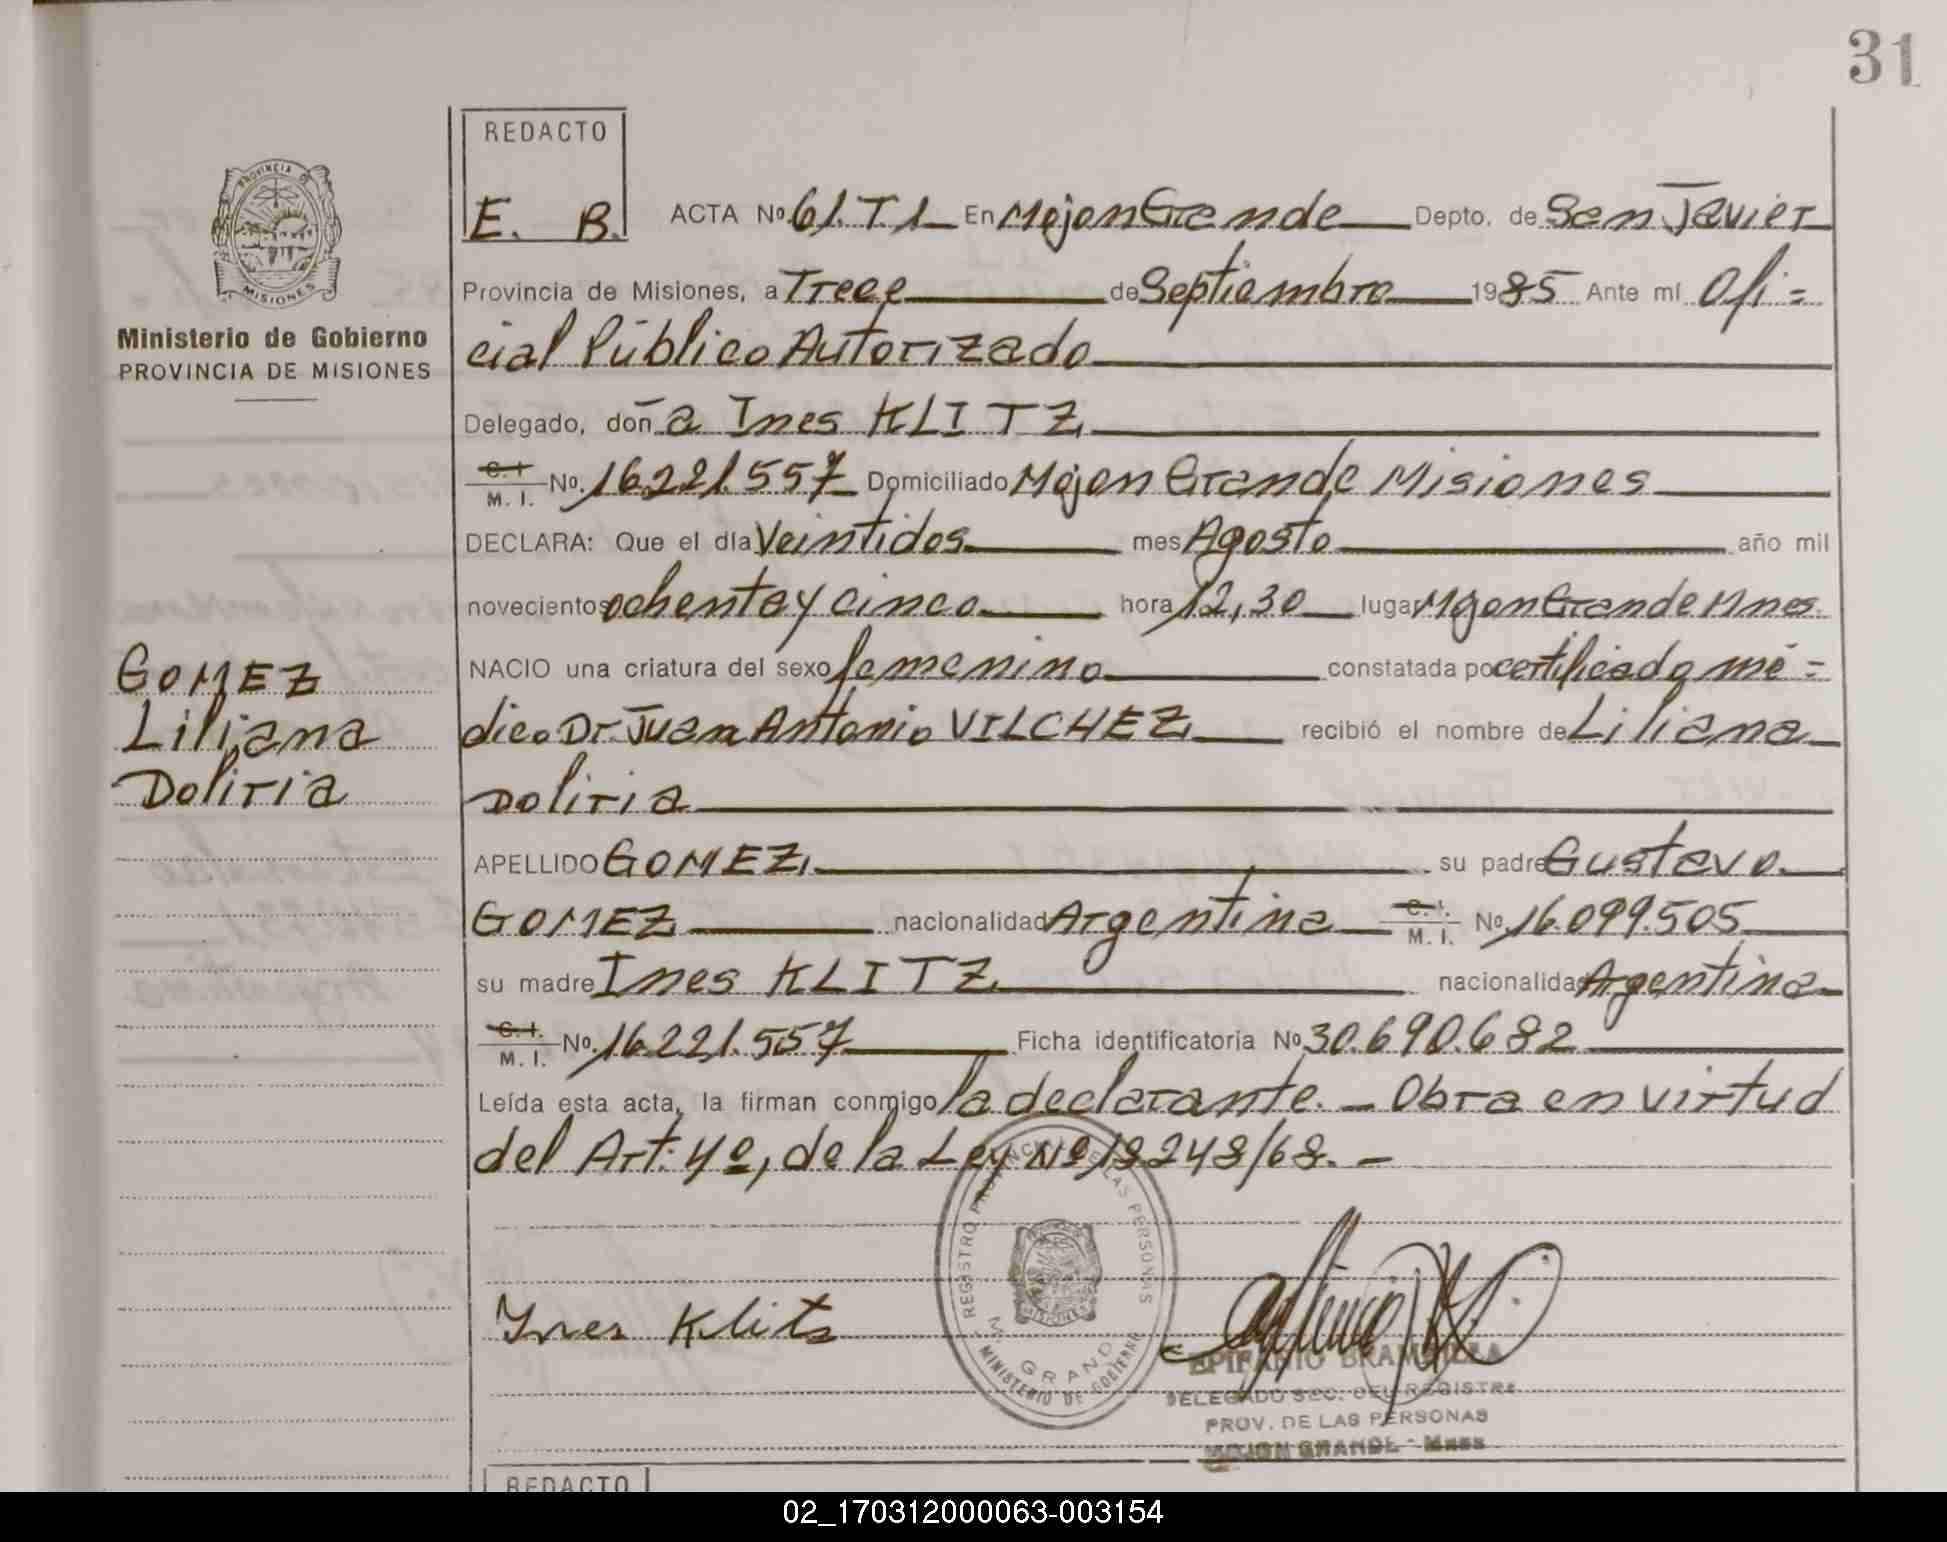 31
REDACTO
E. B.
PROVINCIA DE
MISIONES
Ministerio de Gobierno
PROVINCIA DE MISIONES
ACTA Nº 61. T 1 En Mojon Grande Depto. de San Javier
Provincia de Misiones, a Trece de Septiembre 1985 Ante mí Ofi=
cial Público Autorizado
Delegado, doña Ines KLITZ
C. I. M. I. No. 16.221.557 Domiciliado Mojon Grande Misiones
DECLARA: Que el día Veintidos mes Agosto año mil
novecientos ochenta y cinco hora 12,30 lugar Mojon Grande Mnes.
NACIO una criatura del sexo femenino constatada por certificado mé=
dico Dr. Juan Antonio VILCHEZ recibió el nombre de Liliana
Doliria
GOMEZ
Liliana
Doliria
APELLIDO GOMEZ su padre Gustavo
GOMEZ nacionalidad Argentina C. I. M. I. No. 16.099.505
su madre Ines KLITZ nacionalidad Argentina
C. I. M. I. No. 16.221.557 Ficha identificatoria No 30.690.682
Leída esta acta, la firman conmigo la declarante. - Obra en virtud
del Art: 4º, de la Ley Nº 18248/68. -
REGISTRO PROVINCIAL DE LAS PERSONAS
M. GRANDE
MINISTERIO DE GOBIERNO
MISIONES
Ines Klitz
EPIFANIO
DELEGADO SEC. DEL REGISTRO
PROV. DE LAS PERSONAS
MOJON GRANDE - Mnes
REDACTO
02_170312000063-003154